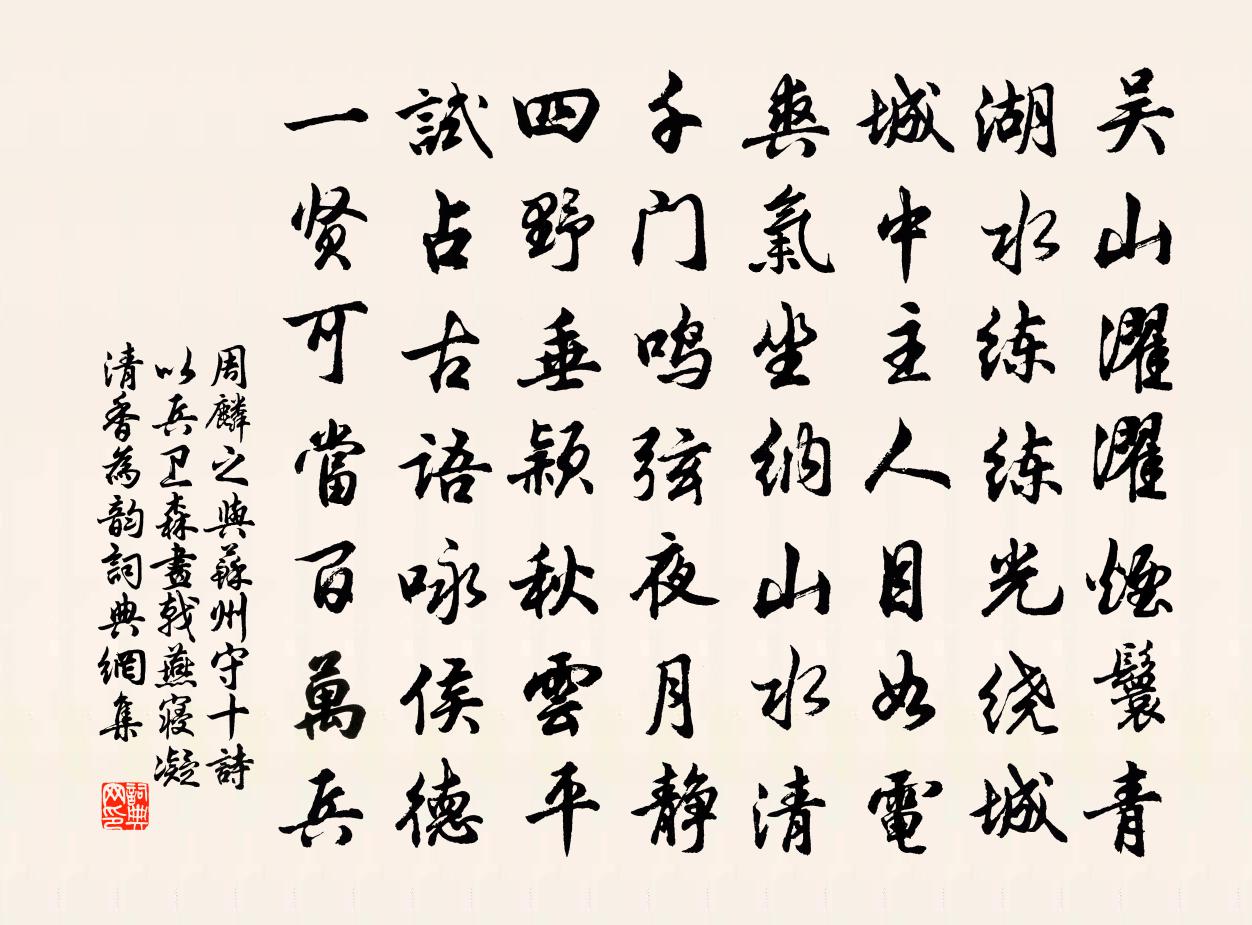 吴山濯濯煙鬟青
湖水练练光绕城
城中主人目如電
爽氣坐纳山水清
千门鸣弦夜月静
四野垂颖秋雲平
試占古語咏侯德
一贤可當百萬兵
周麟之與蘇州守十詩
以兵卫森畫戟燕寝凝
清香為韵詞典網集
詞典网印